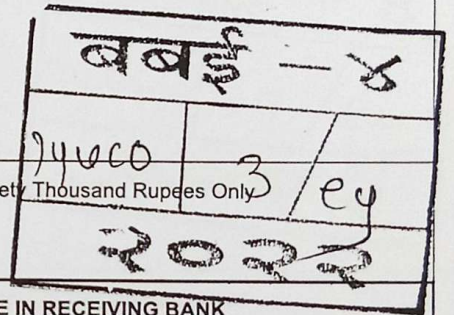 बबई – ४
3 /
ety Thousand Rupees Only
२०२२
E IN RECEIVING BANK